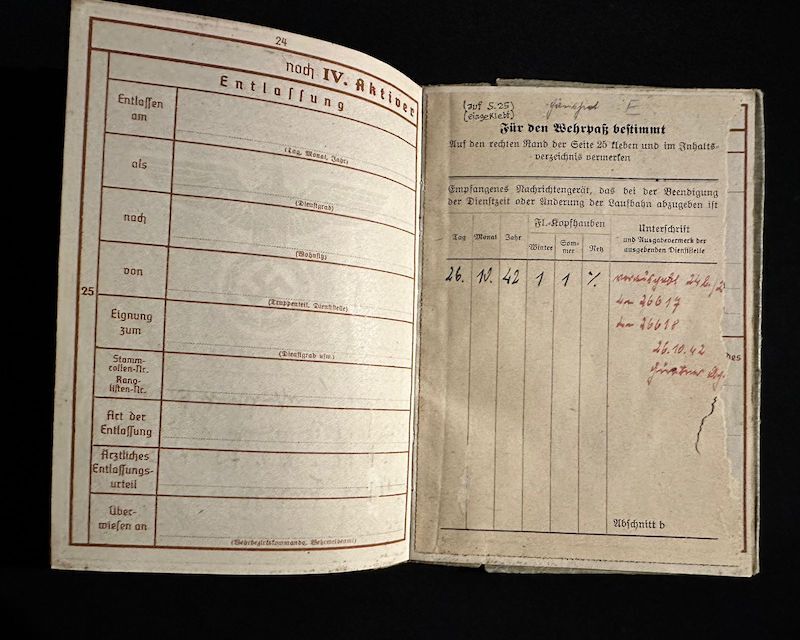 24
noch IV. Aktiver
Entlassung
Entlassen am
(Tag, Monat, Jahr)
als
(Dienstgrad)
nach
(Wohnsitz)
von
(Truppenteil, Dienststelle)
25
Eignung zum
(Dienstgrad usw.)
Stamm-
rollen-Nr.
Rang-
listen-Nr.
Art der
Entlassung
Ärztliches
Entlassungs-
urteil
Über-
wiesen an
(Wehrbezirkskommando, Wehrmeldeamt)
(auf S. 25)
(eingeklebt)
Für den Wehrpaß bestimmt
Auf den rechten Rand der Seite 25 kleben und im Inhalts-
verzeichnis vermerken
Empfangenes Nachrichtengerät, das bei der Beendigung
der Dienstzeit oder Änderung der Laufbahn abzugeben ist
Tag Monat Jahr
Fl.-Kopfhauben
Winter Som-
mer Netz
Unterschrift
und Ausgabevermerk der
ausgebenden Dienststelle
26. 10. 42 1 1 %
26617
26618
26.10.42
Abschnitt b